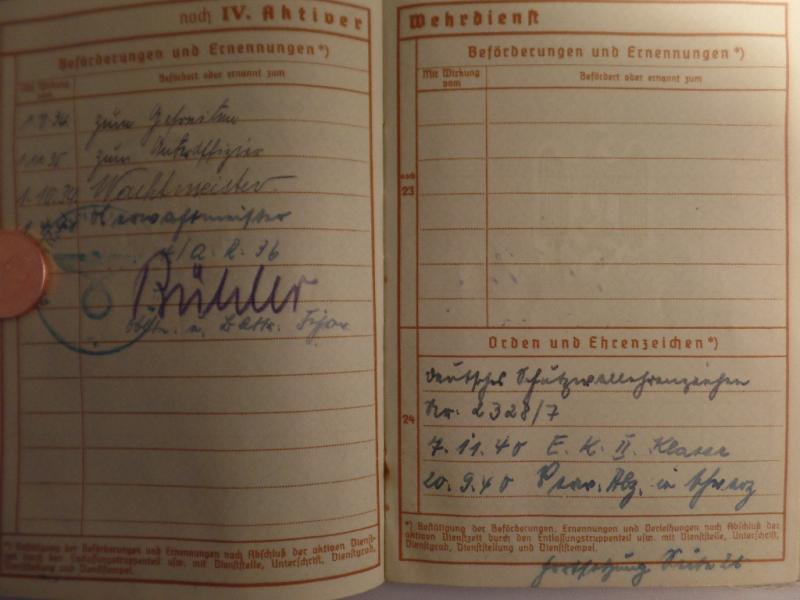 noch IV. Aktiver
Beförderungen und Ernennungen*)
Mit Wirkung vom
Befördert oder ernannt zum
zum Gefreiten
zum Unteroffizier
Wachtmeister
Oberwachtmeister
A. R. 36
Bühler
*) Bestätigung der Beförderungen und Ernennungen nach Abschluß der aktiven Dienst-
zeit durch den Entlassungstruppenteil usw. mit Dienststelle, Unterschrift, Dienstgrad,
Dienststellung und Dienststempel.
Wehrdienst
Beförderungen und Ernennungen*)
Mit Wirkung vom
Befördert oder ernannt zum
noch 23
Orden und Ehrenzeichen*)
24
Deutsches Schutzwallehrenzeichen
Nr. 2328/7
7.11.40 E. K. II. Klasse
20.9.40 Verw. Abz. in Schwarz
*) Bestätigung der Beförderungen, Ernennungen und Verleihungen nach Abschluß der
aktiven Dienstzeit durch den Entlassungstruppenteil usw. mit Dienststelle, Unterschrift,
Dienstgrad, Dienststellung und Dienststempel.
Fortsetzung Seite 26